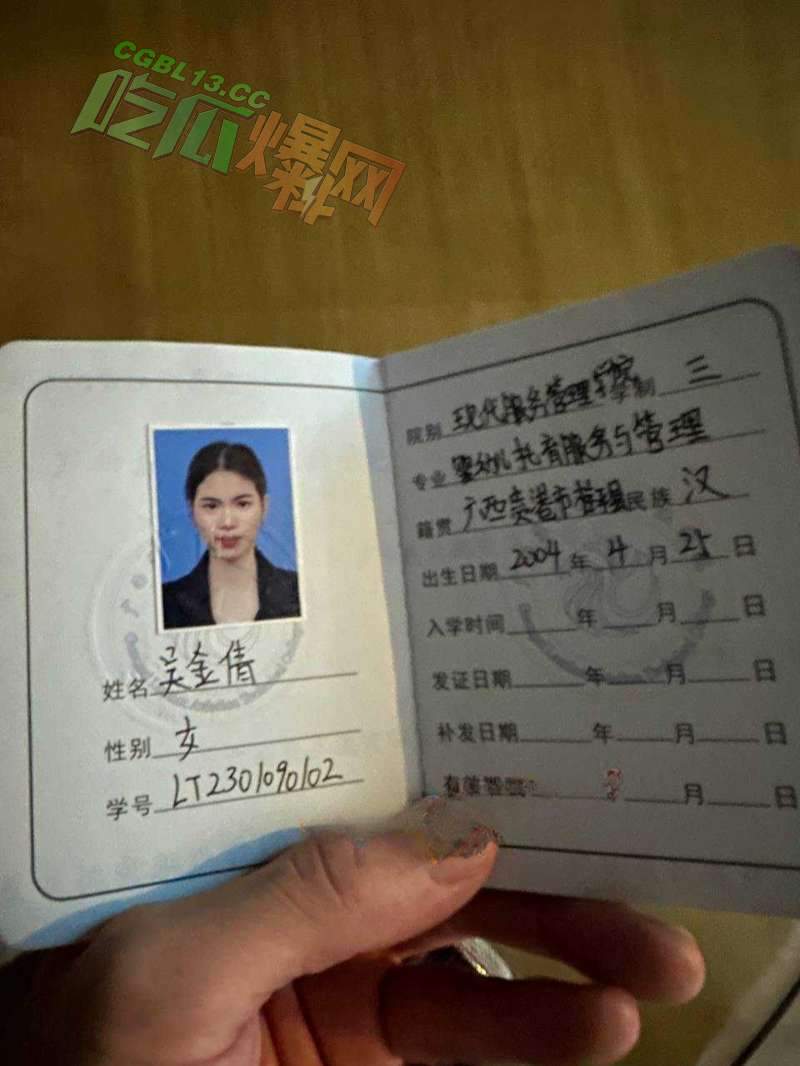 CGBL13.CC
吃瓜爆料网
院别 现代服务管理学院 学制 三
专业 婴幼儿托育服务与管理
籍贯 广西贵港市 民族 汉
出生日期 2004 年 4 月 25 日
入学时间 年 月 日
发证日期 年 月 日
补发日期 年 月 日
月 日
姓名 吴金倩
性别 女
学号 LT2301090102